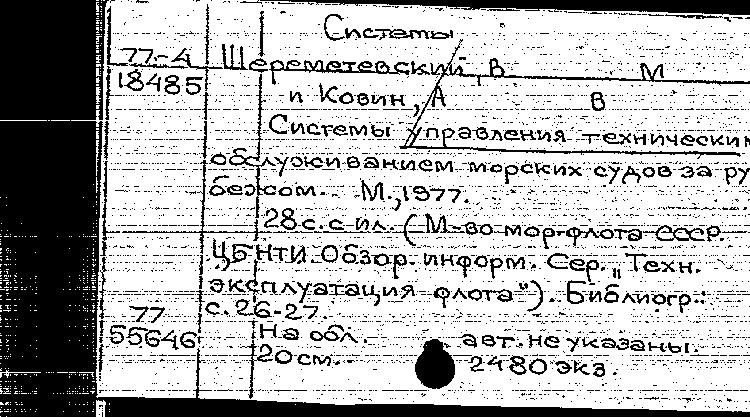 Системы
77-4 Шереметевский, В М
18485
и Ковин, А В
Системы управления техническим
обслуживанием морских судов за ру
бежом. М., 1977.
28 с. с ил. (М-во мор. флота СССР.
ЦБНТИ. Обзор. информ. Сер. „Техн.
эксплуатация флота"). Библиогр.:
с. 26-27.
77
55646 На обл. авт. не указаны.
20 см. 2480 экз.